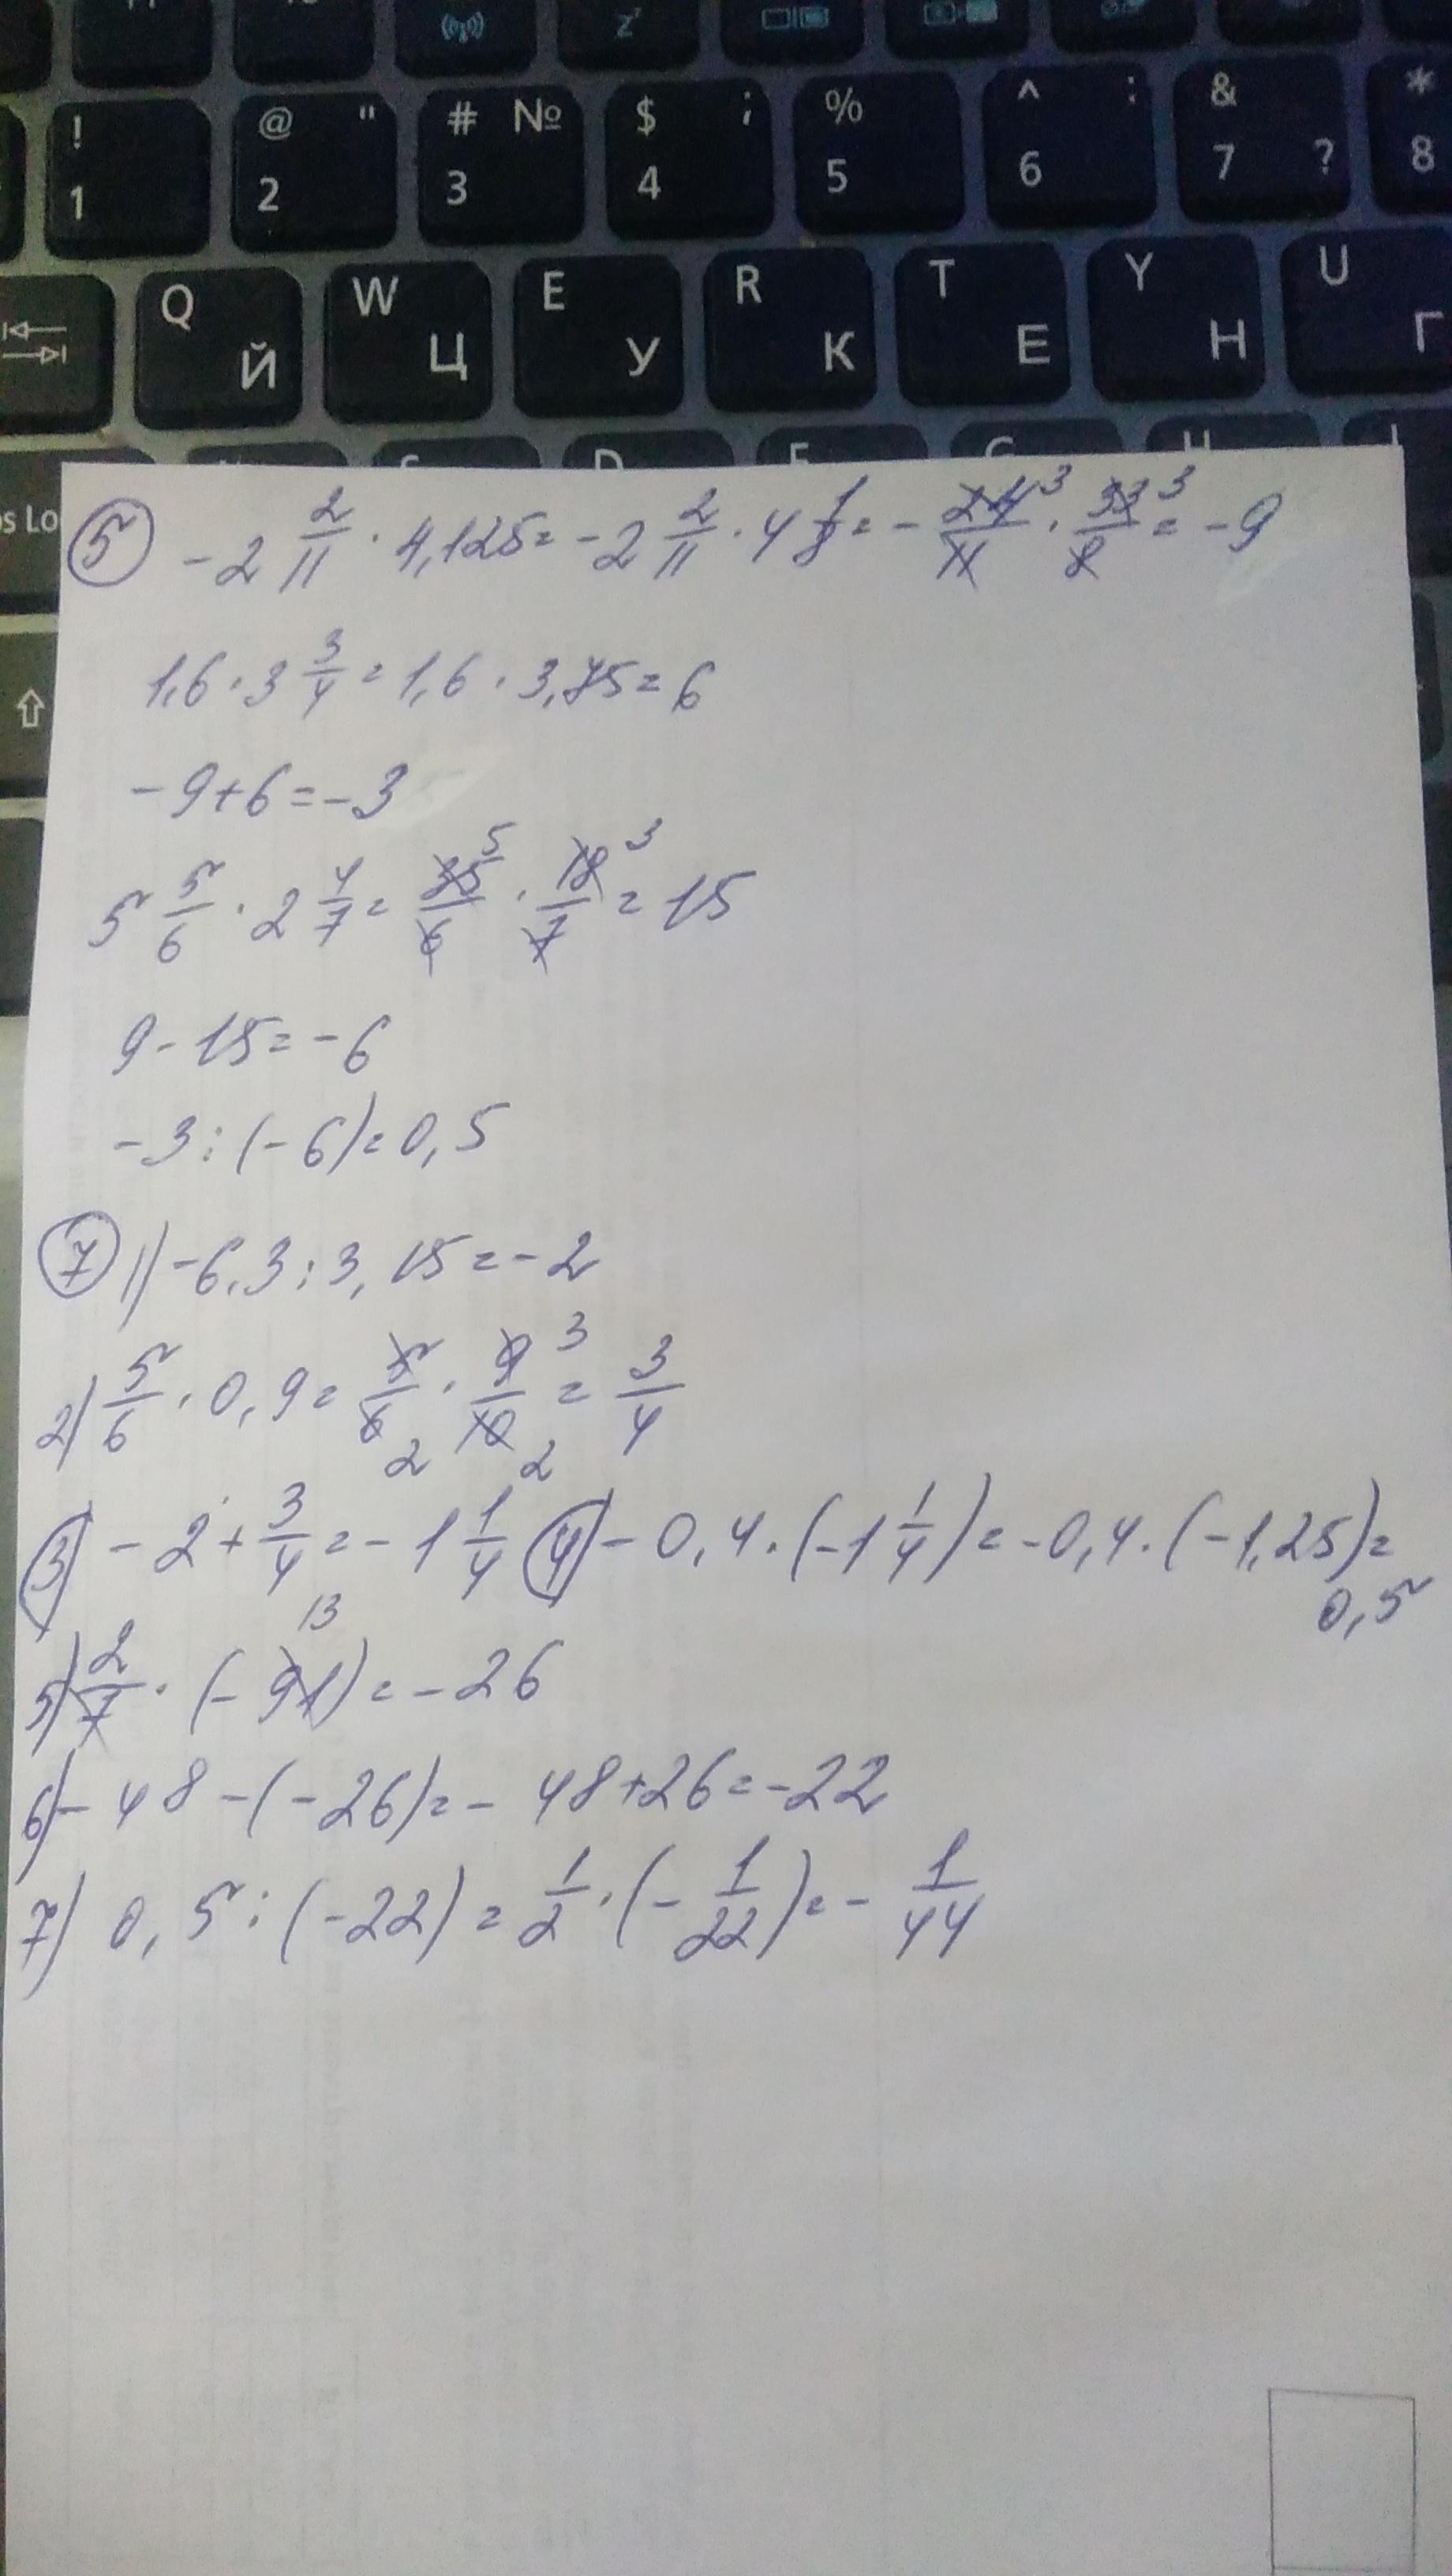 ! 1 @ " 2 # № 3 $ ; 4 % 5 ^ : 6 & 7 ? * 8
Q Й W Ц E У R К T Е Y Н U Г
s Lo
5 -2 2/11 · 4,125 = -2 2/11 · 4 1/8 = - 24/11 3 · 33/8 3 = -9
1,6 · 3 3/4 = 1,6 · 3,75 = 6
-9+6=-3
5 5/6 · 2 4/7 = 35/6 5 · 18/7 3 = 15
9-15=-6
-3:(-6)=0,5
7 1) -6,3:3,15=-2
2) 5/6 · 0,9 = 5/6 2 · 9/10 3 2 = 3/4
3) -2+3/4=-1 1/4 4) -0,4·(-1 1/4)=-0,4·(-1,25)=
0,5
5) 2/7 · (-91) 13 = -26
6) -48-(-26)=-48+26=-22
7) 0,5:(-22)=1/2·(-1/22)=-1/44